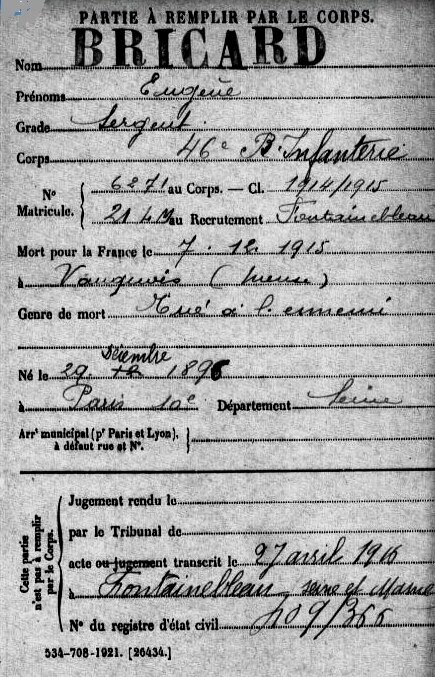 PARTIE À REMPLIR PAR LE CORPS.
Nom BRICARD
Prénoms Eugène
Grade Sergent
Corps 46e R. Infanterie
N° Matricule. { 6271 au Corps. — Cl. 1914/1915
21 43 au Recrutement Fontainebleau
Mort pour la France le 7. 12. 1915
à Vauquois (Meuse)
Genre de mort Tué à l'ennemi
Décembre
Né le 29 1896
à Paris 10e Département Seine
Arrt municipal (pr Paris et Lyon), à défaut rue et N°. {
Cette partie n'est pas à remplir par le Corps.
Jugement rendu le
par le Tribunal de
acte ou jugement transcrit le 27 avril 1916
à Fontainebleau, Seine et Marne
N° du registre d'état civil 109/366
534-708-1921. [26434.]